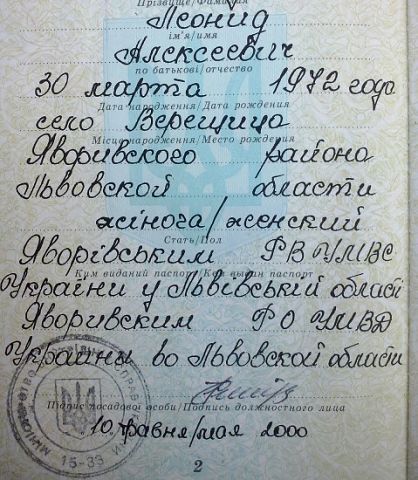 Прізвище/Фамилия
Леонид
ім'я/имя
Алексеевич
по батькові/отчество
30 марта 1972 года
Дата народження/Дата рождения
село Верещица
Місце народження/Место рождения
Яворивского района
Львовской области
жіноча/женский
Стать/Пол
Яворівським РВ УМВС
Ким виданий паспорт/Кем выдан паспорт
України у Львівській області
Яворивским РО УМВД
Украины во Львовской области
Підпис посадової особи/Подпись должностного лица
10 травня/мая 2000
15-33
2